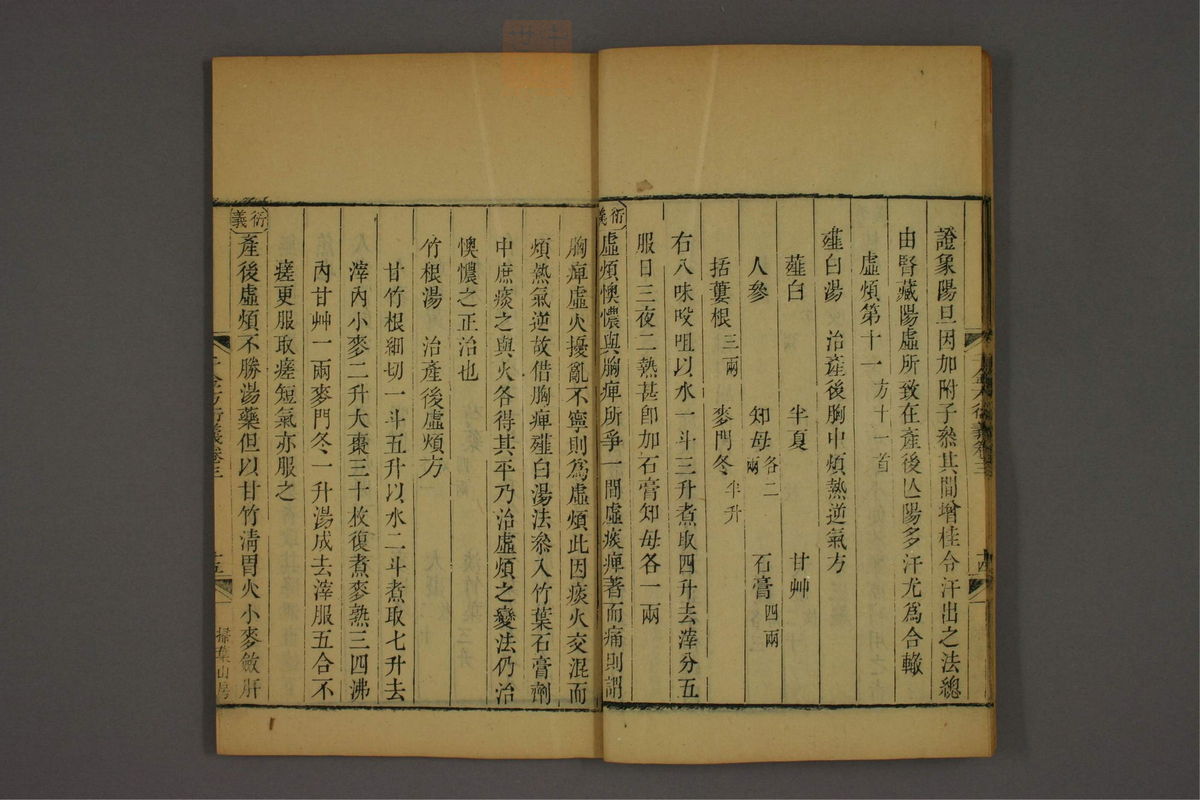 證象陽旦因加附子叅其間增桂令汗出之法總
由腎藏陽虛所致在產後亾陽多汗尤爲合轍
虛煩第十一 方十一首
薤白湯 治產後胸中煩熱逆氣方
薤白 半夏 甘艸
人參 知母各二兩 石膏四兩
括蔞根三兩 麥門冬半升
右八味㕮咀以水一斗三升煮取四升去滓分五
服日三夜二熱甚卽加石膏知母各一兩
衍義 虛煩懊憹與胸痺所爭一間虛痰痺著而痛則謂
胸痺虛火擾亂不寧則爲虛煩此因痰火交混而
煩熱氣逆故借胸痺薤白湯法叅入竹葉石膏劑
中庶痰之與火各得其平乃治虛煩之變法仍治
懊憹之正治也
竹根湯 治產後虛煩方
甘竹根細切一斗五升以水二斗煮取七升去
滓內小麥二升大棗三十枚復煮麥熟三四沸
內甘艸一兩麥門冬一升湯成去滓服五合不
瘥更服取瘥短氣亦服之
衍義 產後虛煩不勝湯藥但以甘竹淸胃火小麥斂肝
掃葉山房